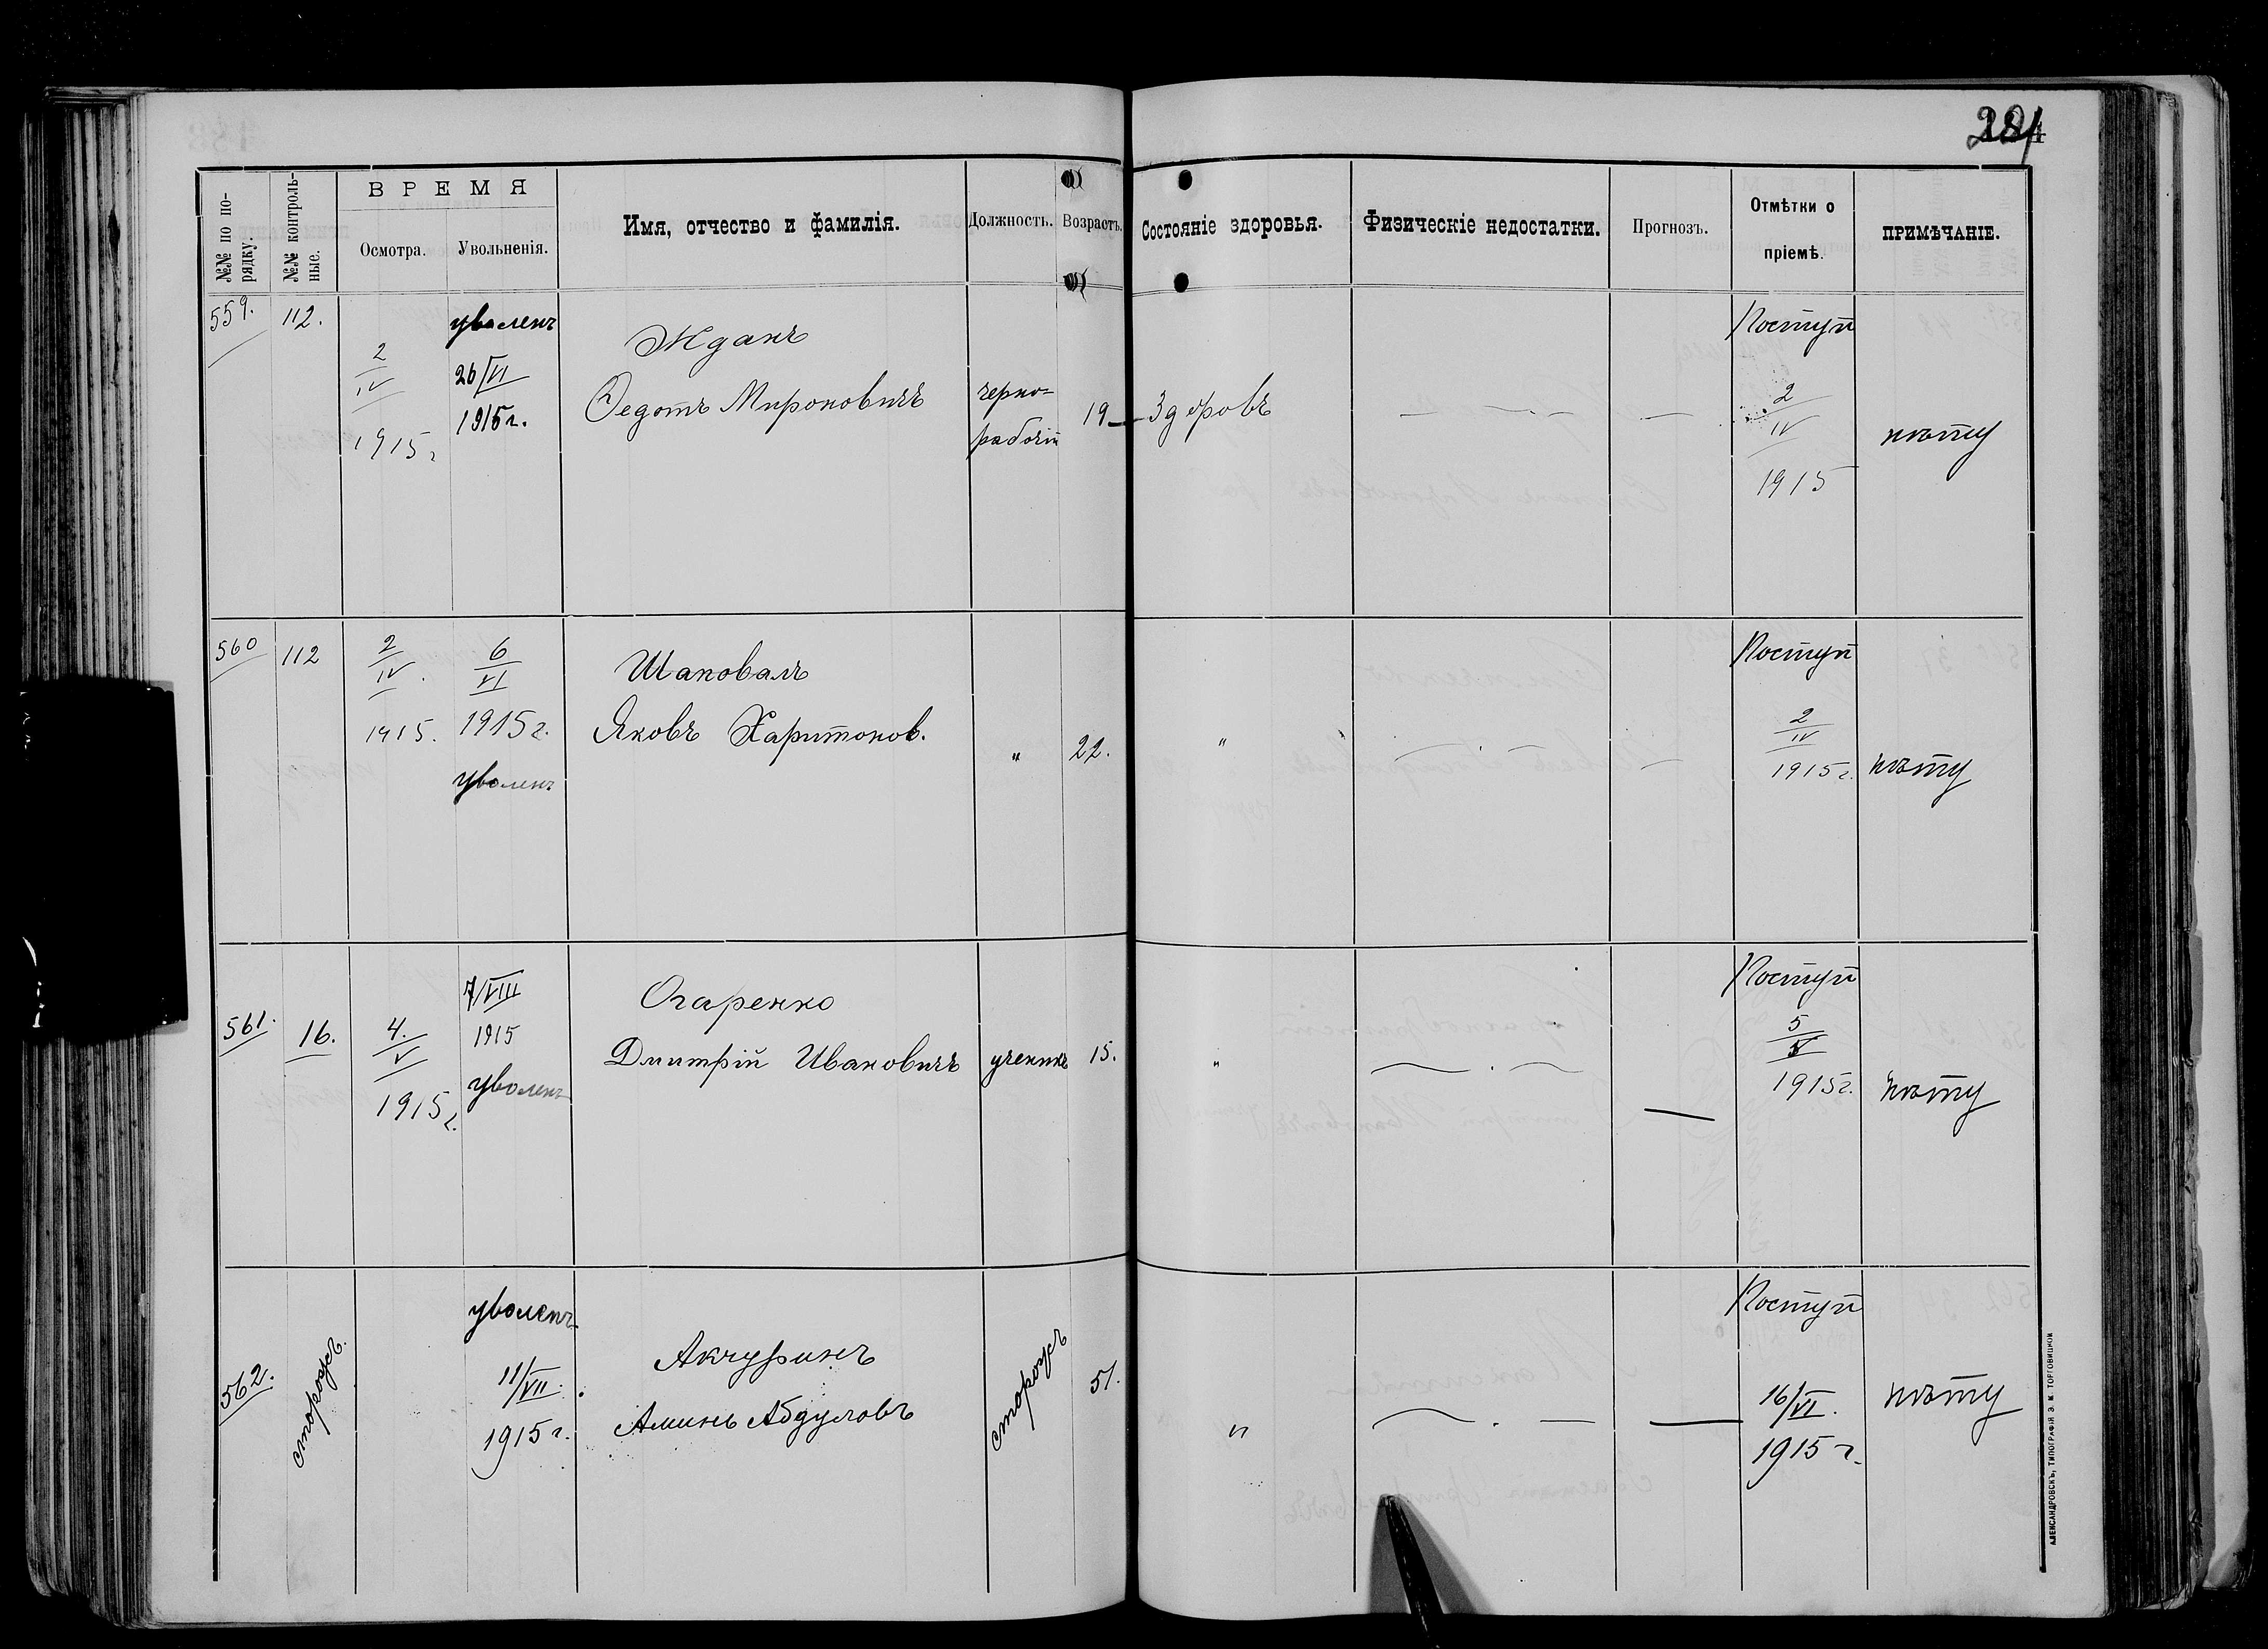 №№ по по-
рядку.
№№ контроль-
ные.
ВРЕМЯ
Осмотра.
Увольненія.
Имя, отчество и фамилія.
Должность.
Возрастъ.
Состояніе здоровья.
Физическіе недостатки.
Прогнозъ.
Отмѣтки о
пріемѣ.
ПРИМѢЧАНІЕ.
559.
112.
2
IV
1915 г
уволенъ
26/VI
1915 г.
Жданъ
Федотъ Мироновичъ
черно=
рабочій
19
Здоровъ
Поступ
2
IV
1915
нѣту
560
112
2
IV
1915.
6
VI
1915 г.
уволенъ
Шаповалъ
Яковъ Харитонов.
"
22.
"
Поступ
2
IV
1915 г.
нѣту
561.
16.
4.
V
1915 г.
7/VIII
1915
уволенъ
Огаренко
Дмитрій Ивановичъ
ученикъ
15.
"
Поступ
5
V
1915 г.
нѣту
562.
сторожъ.
уволенъ
11/VII.
1915 г.
Акчуринъ
Аминь Абдуловъ
сторожъ
51.
"
Поступ
16/VI.
1915 г.
нѣту
АЛЕКСАНДРОВСКЪ, ТИПОГРАФІЯ Э. М. ТОРГОВИЦКОЙ